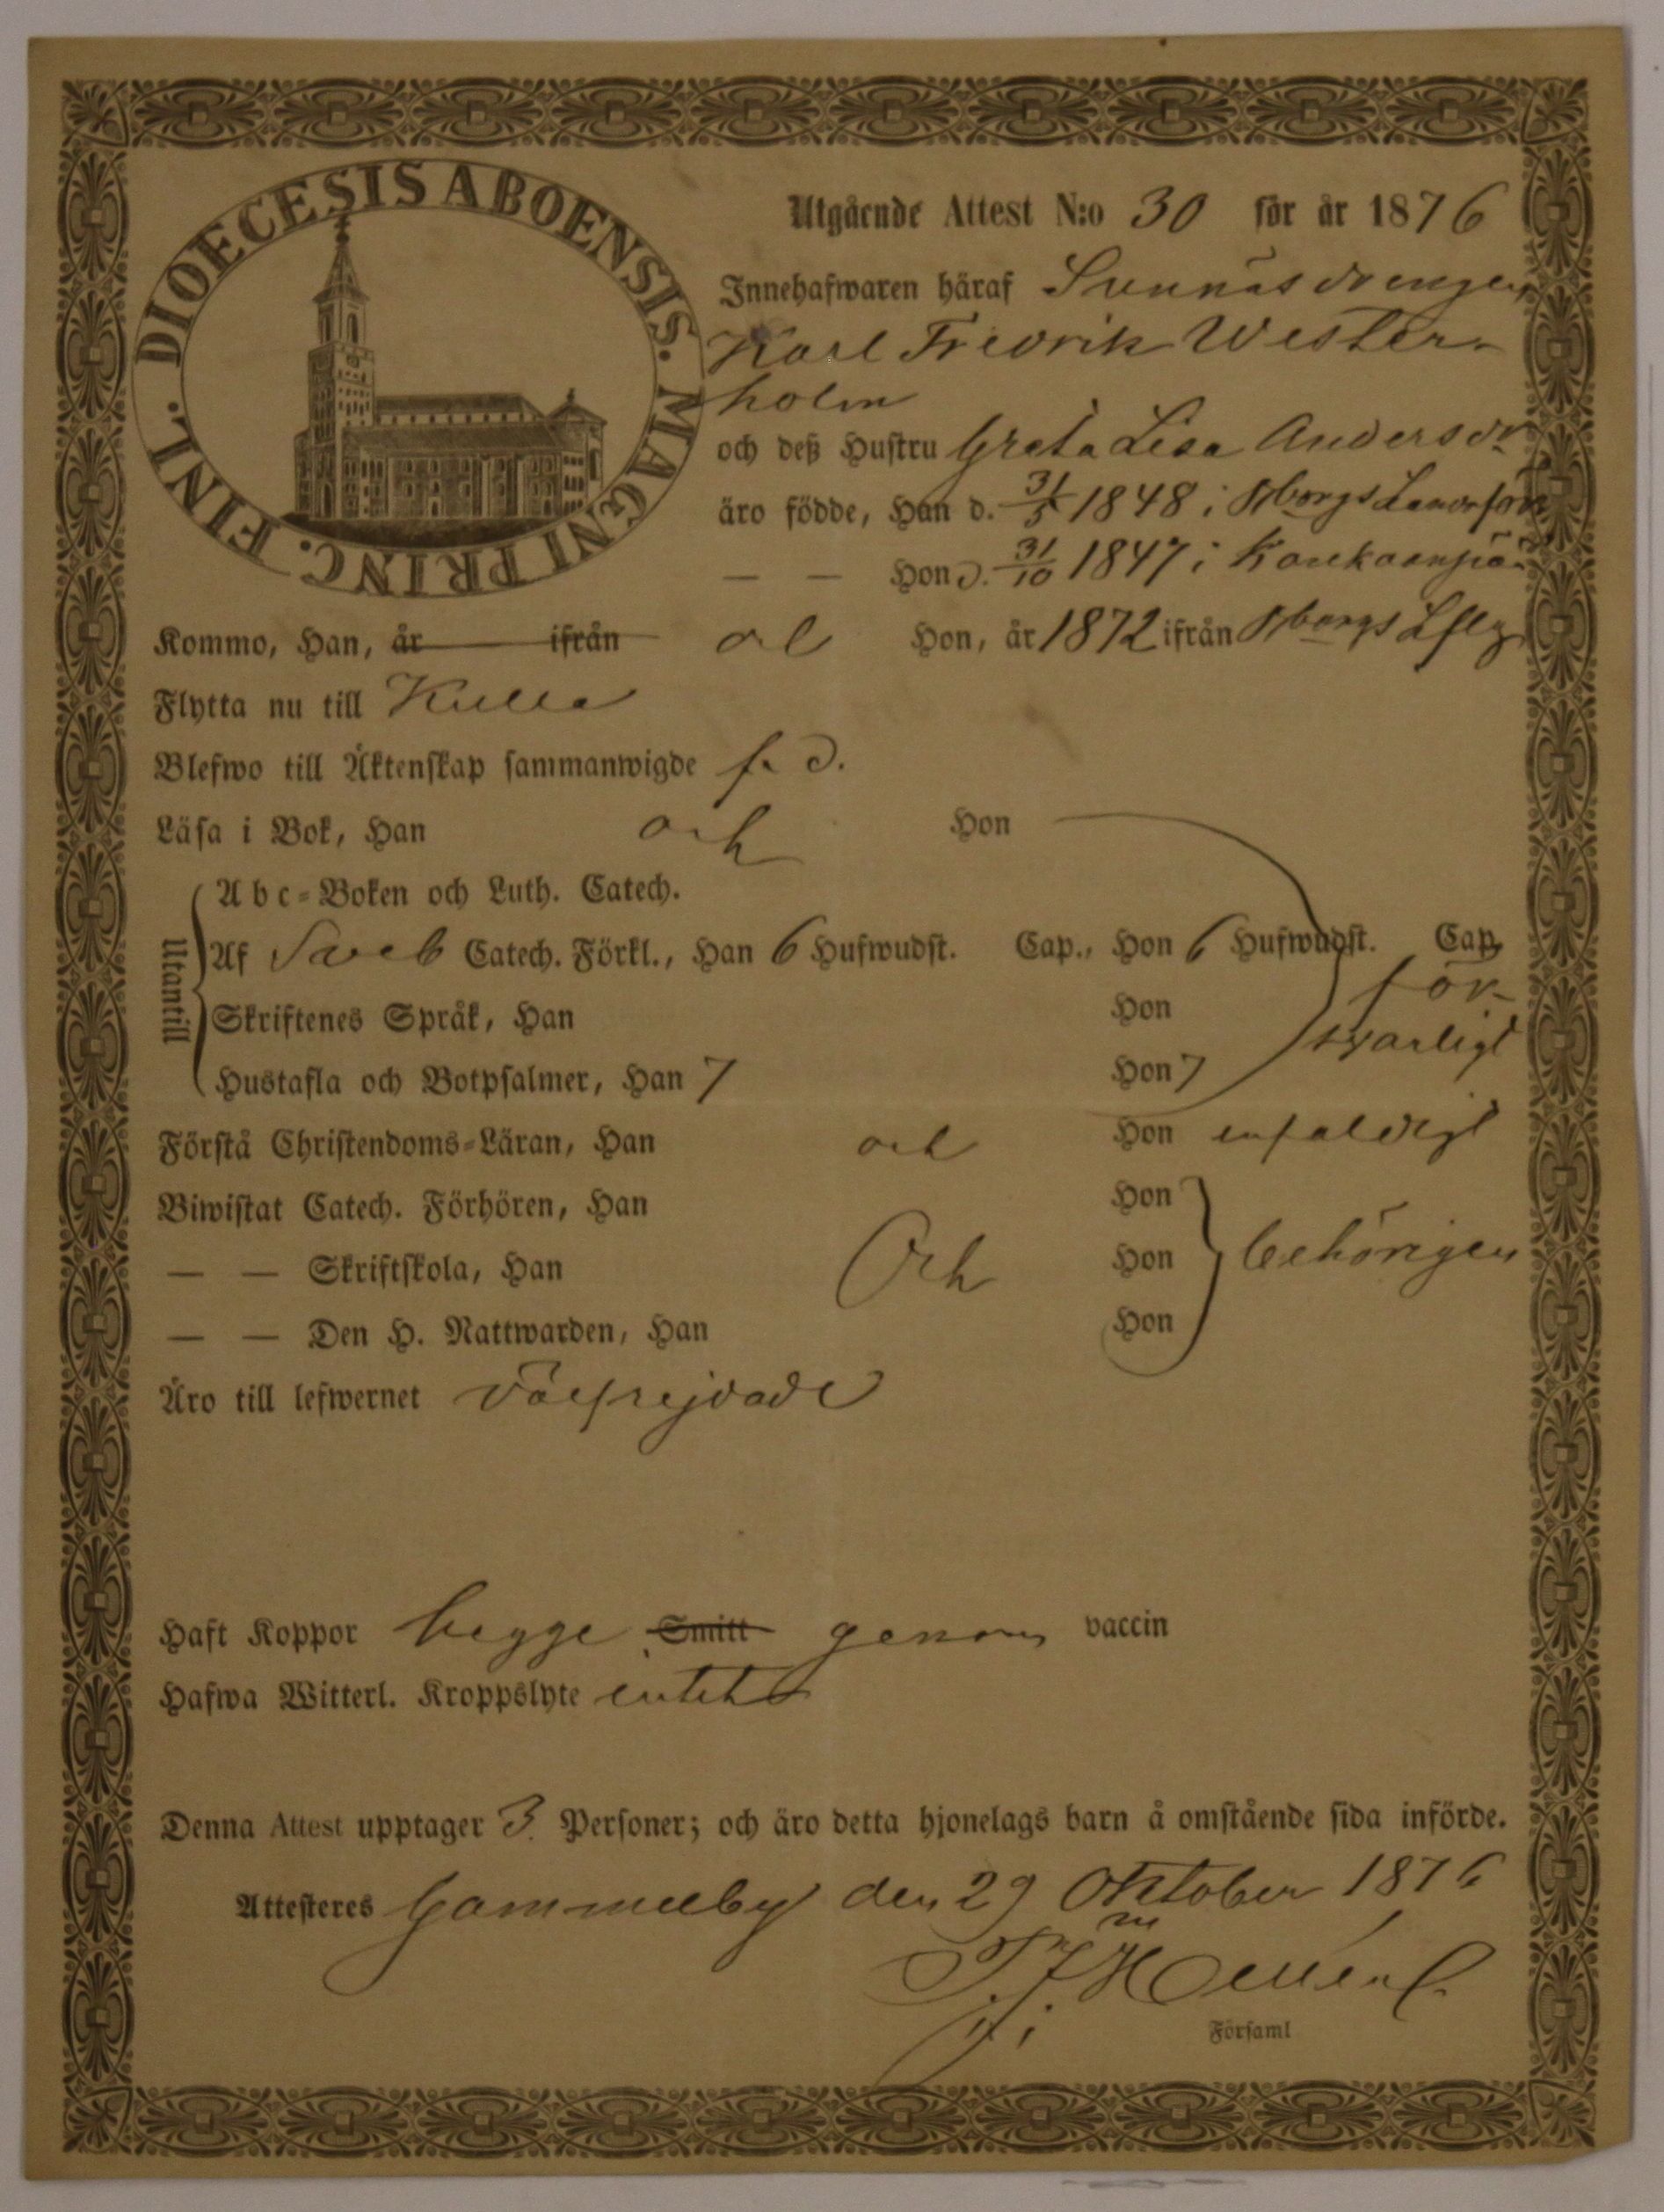 DIOECESIS ABOENSIS. MAGNI PRINC. FINL.
Utgående Attest N:o 30 för år 1876
Innehafwaren häraf Sunnäs drengen
Karl Fredrik Wester-
holm
och deß Hustru Greta Lisa Andersdr
äro födde, Han d. 31/5 1848 i Borgå Landsförs
— — Hon d. 31/10 1847 i
Kommo, Han, år ifrån och Hon, år 1872 ifrån Borgå Lfsg
Flytta nu till Kulla
Blefwo till Äktenskap sammanwigde f. d.
Läsa i Bok, Han och Hon
Utantill
Abc-Boken och Luth. Catech.
Af Sveb Catech. Förkl., Han 6 Hufwudst. Cap., Hon 6 Hufwudst. Cap.
Skriftenes Språk, Han Hon för-
svarligt
Hustafla och Botpsalmer, Han 7 Hon 7
Förstå Christendoms-Läran, Han och Hon enfaldigt
Biwistat Catech. Förhören, Han Hon
— — Skriftskola, Han Och Hon behörigen
— — Den H. Nattwarden, Han Hon
Äro till lefwernet välfrejdade
Haft Koppor begge Smitt genom vaccin
Hafwa Witterl. Kroppslyte intet
Denna Attest upptager 3. Personer; och äro detta hjonelags barn å omstående sida införde.
Attesteres Gammelby den 29 Oktober 1876
Församl